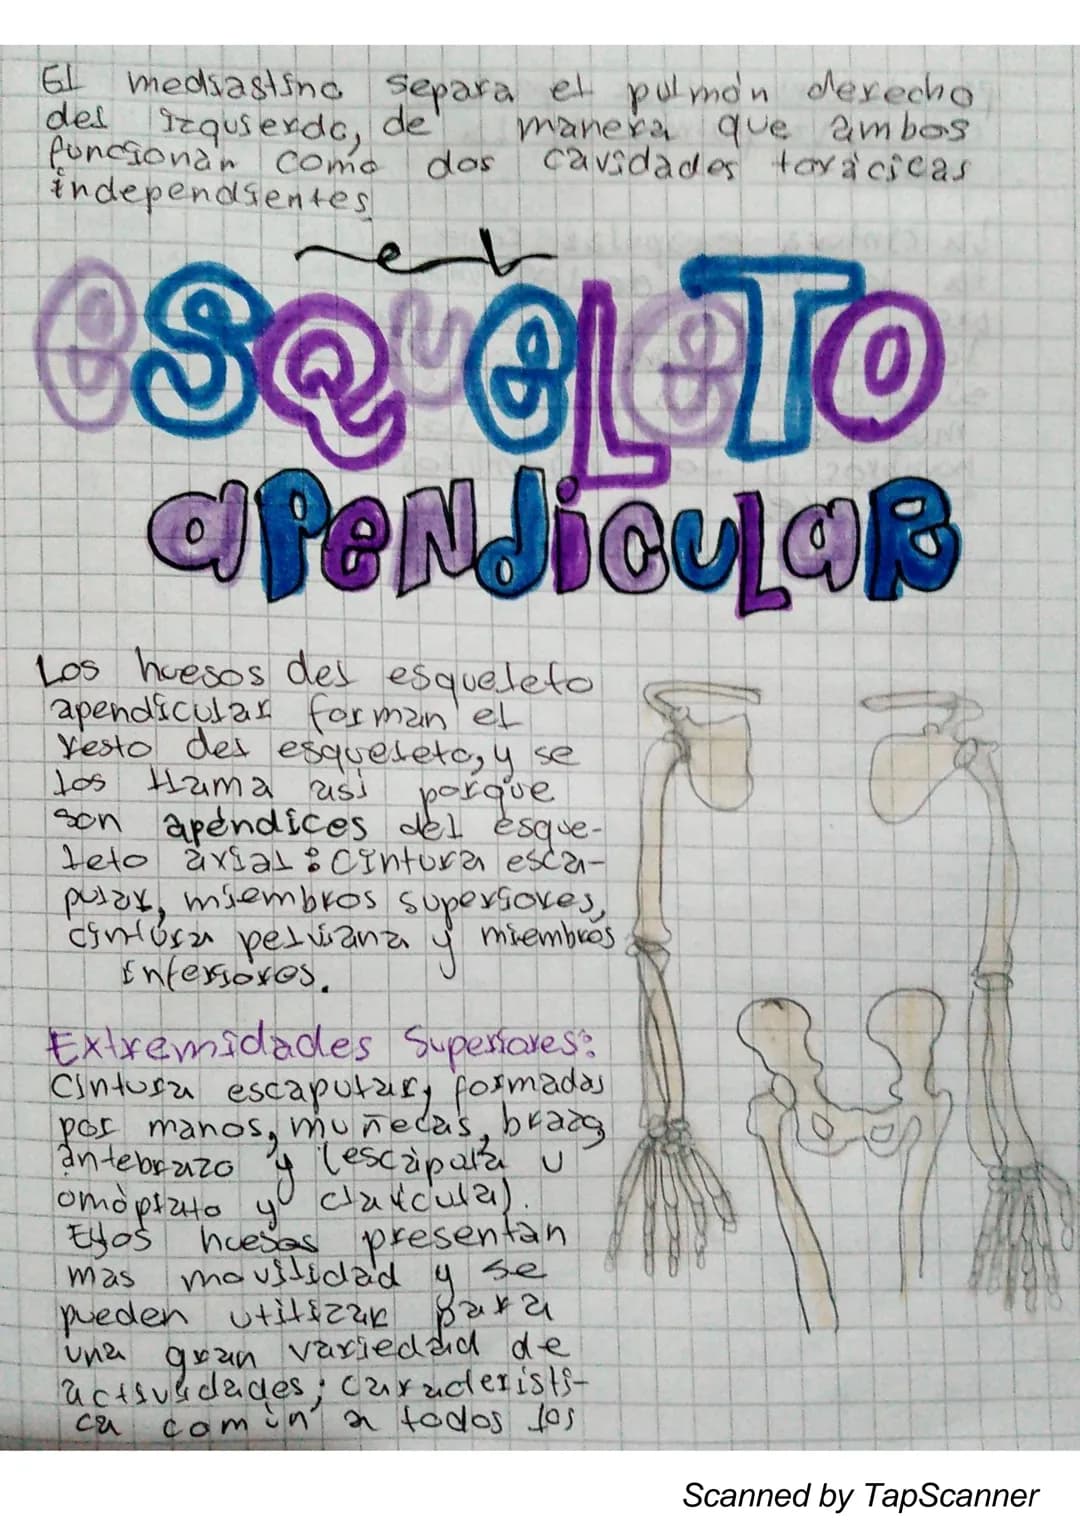 El mediastino separa el pulmón derecho
del izquierdo, de manera que ambos
funcionan como dos cavidades torácicas
independientes
el
esqueleto
apendicular
Los huesos del esqueleto
apendicular forman el
resto del esqueleto, y se
los llama asi porque
son apéndices del esque-
leto axial: cintura esca-
pular, miembros superiores,
cintura pelviana y miembros
inferiores.
Extremidades Superiores:
Cintura escapular, formadas
por manos, muñecas, brazo
antebrazo y (escápala u
omóplato y clavicula).
Ellos huesos presentan
mas movilidad y se
pueden utilizar para
una gran variedad de
actividades; caracteristi-
ca común a todos los
Scanned by TapScanner